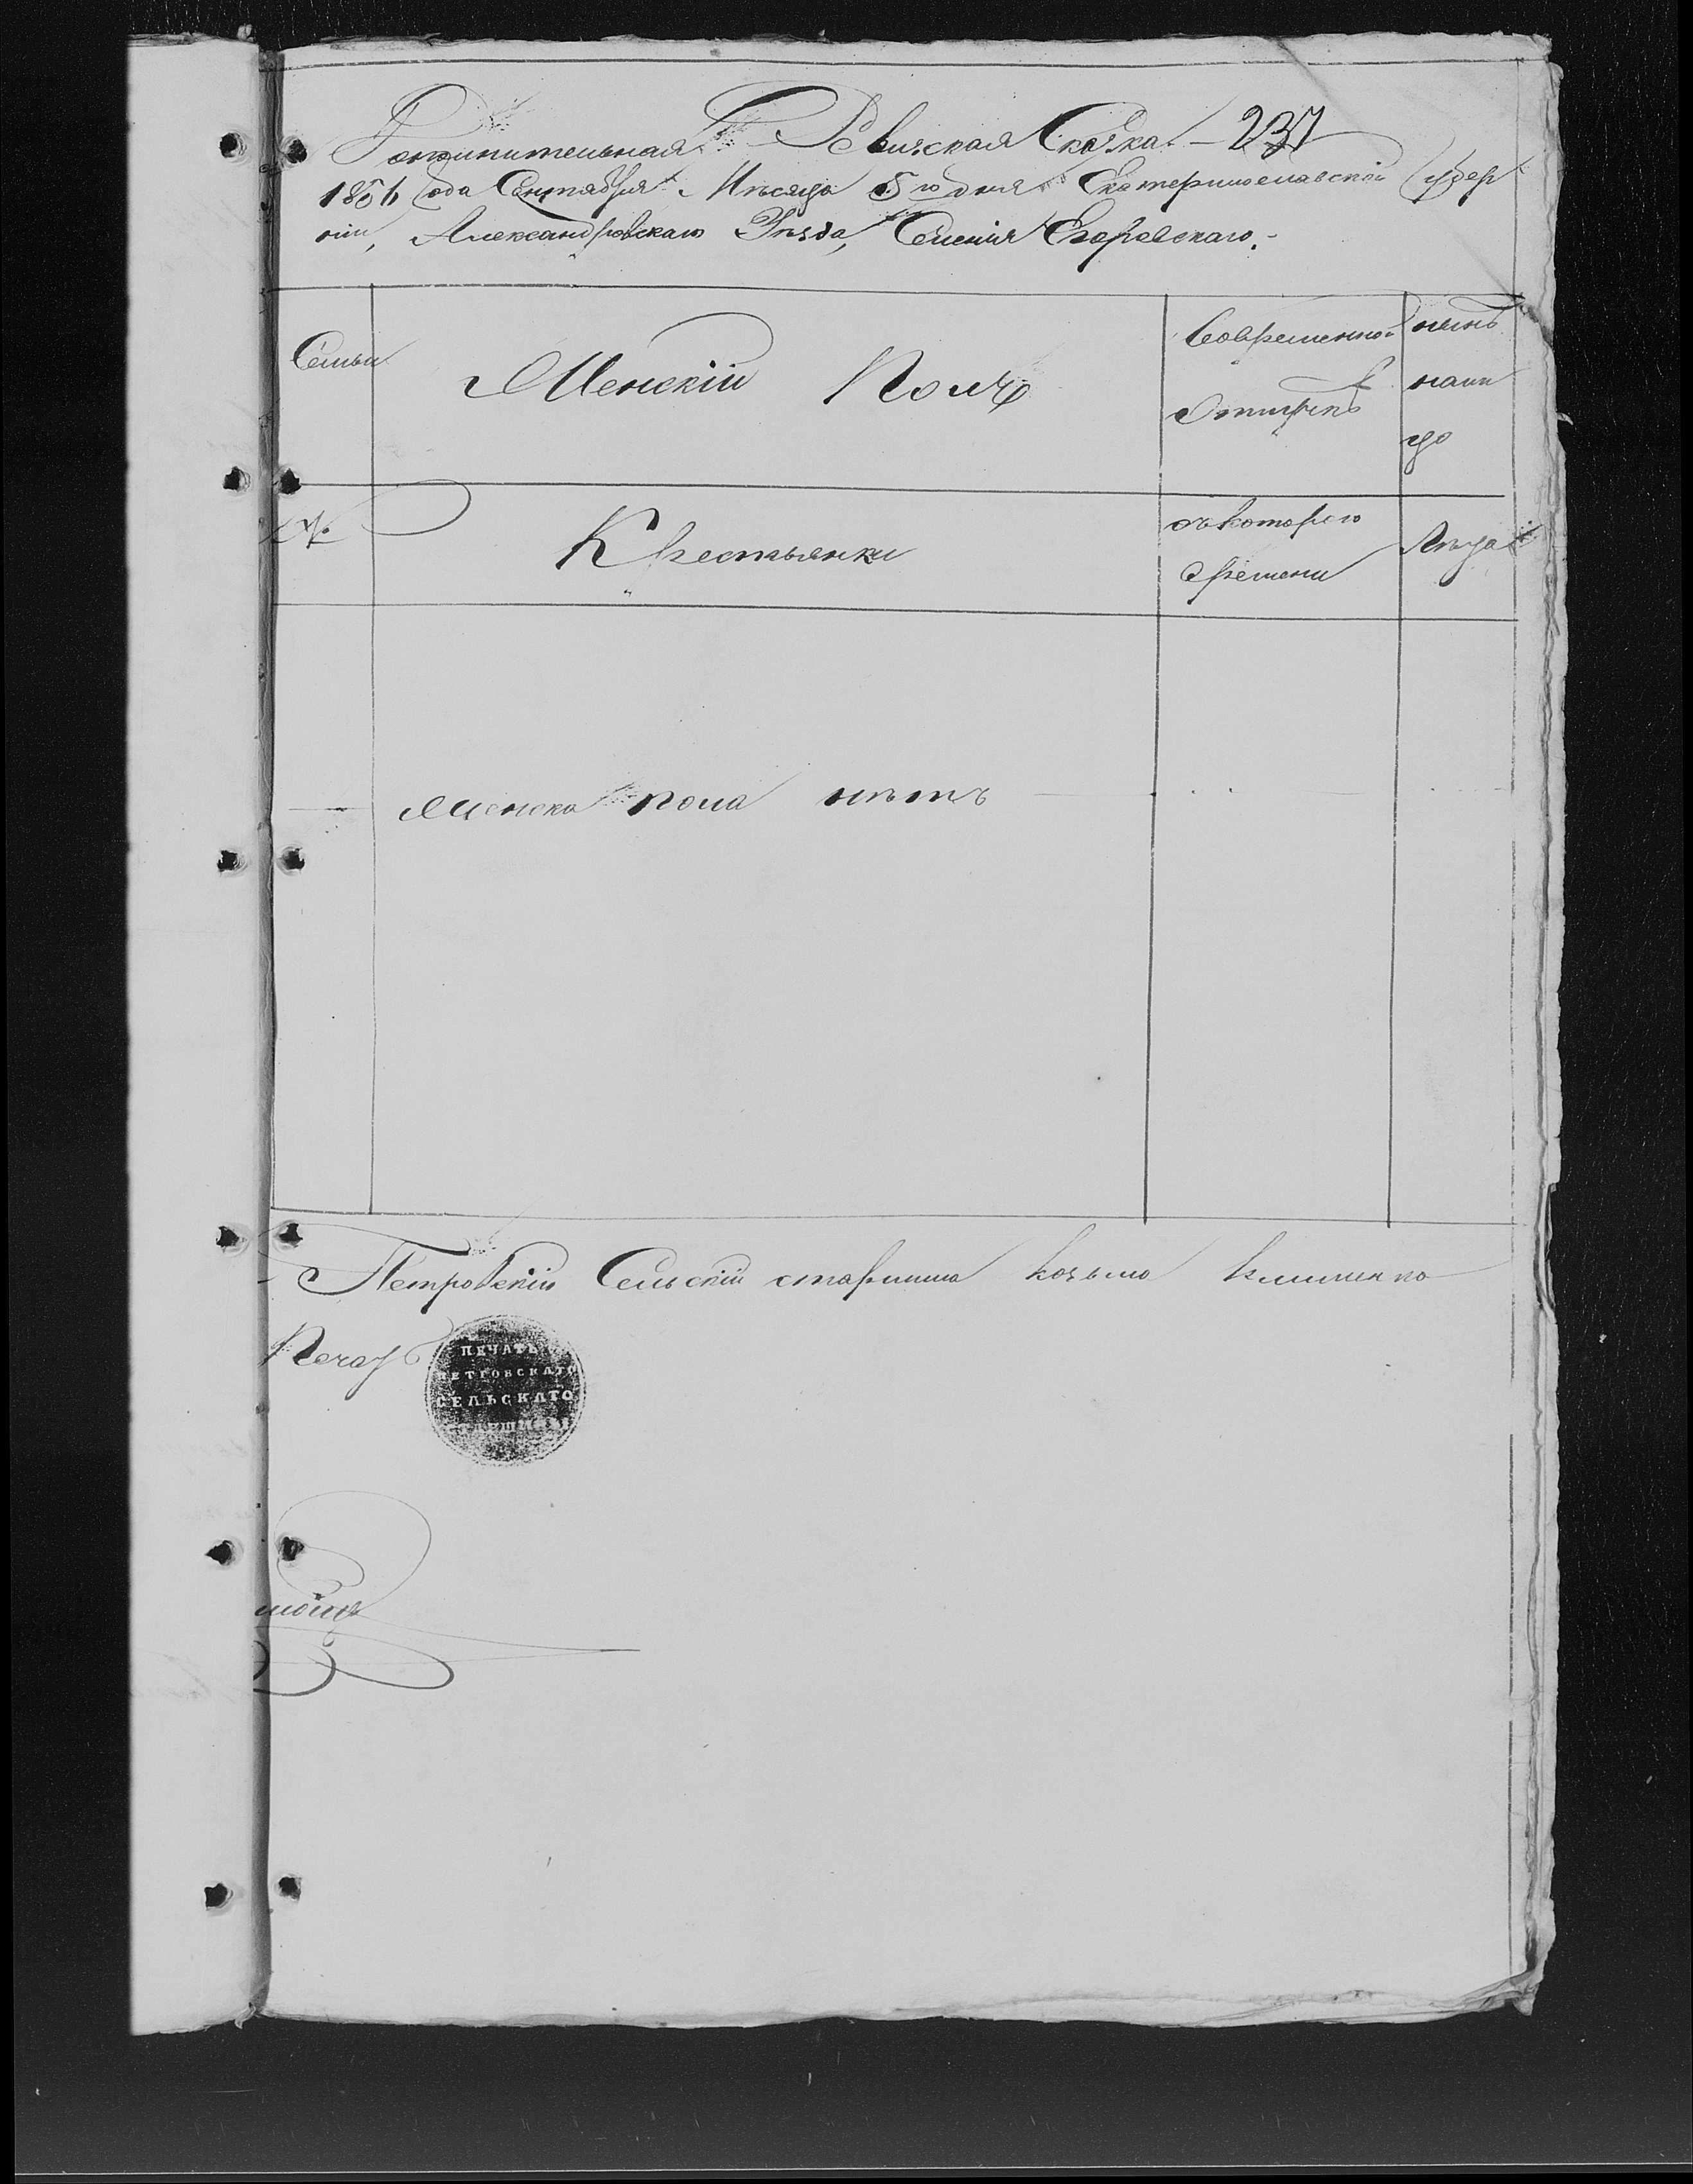 Дополнительная Ревизская Сказка 237
1856 Года Сентября Месяца 5го дня Екатеринославской Губер
нии, Александровскаго Уезда, Селения Егоровскаго.
Семьи
Женский Полъ
Современной
Отлучкѣ
нынѣ
нали
цо
№
Крестьянки
съ котораго
времени
Лѣта
Женска пола нѣтъ
Петровский Сельский старшина козьма клименко
Печать
ПЕЧАТЬ
ПЕТРОВСКАГО
СЕЛЬСКАГО
СТАРШИНЫ